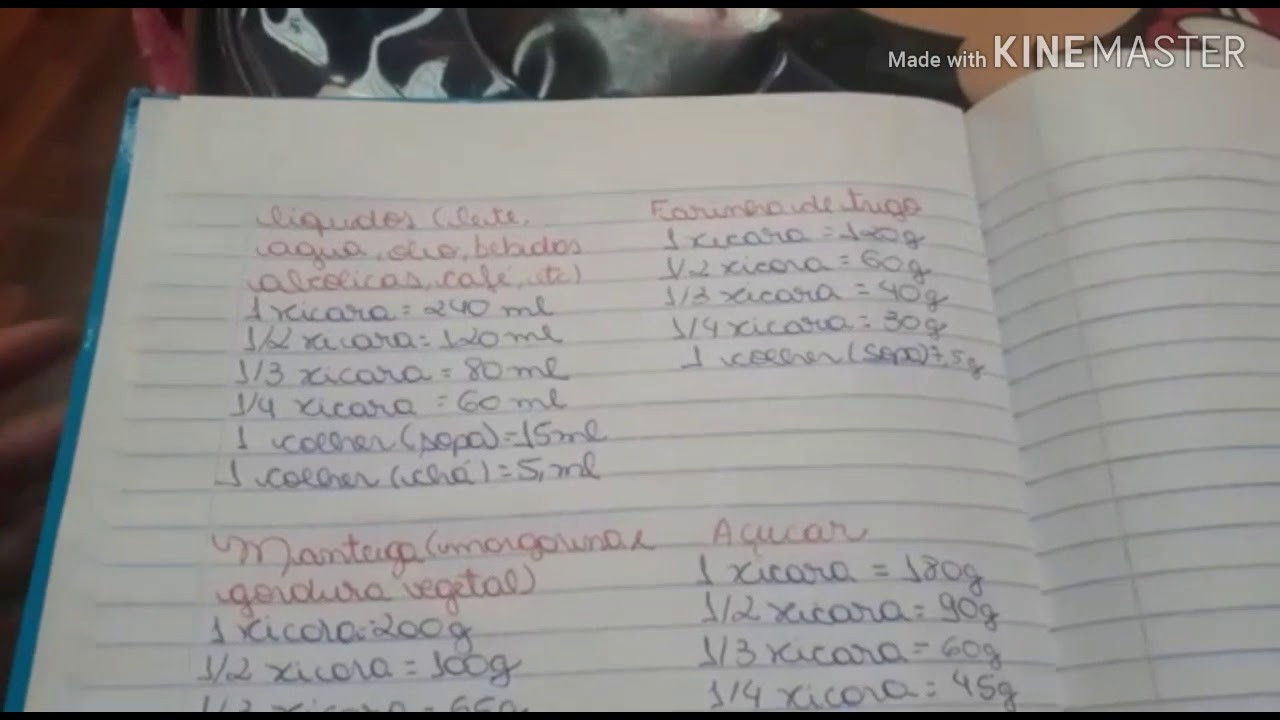 Made with KINEMASTER
liquidos (leite,
agua, oleo, bebidas
alcolicas, café, etc)
1 xicara = 240 ml
1/2 xicara = 120 ml
1/3 xicara = 80 ml
1/4 xicara = 60 ml
1 colher (sopa) = 15 ml
1 colher (chá) = 5, ml
Farinha de trigo
1 xicara = 120g
1/2 xicara = 60g
1/3 xicara = 40g
1/4 xicara = 30g
1 colher (sopa) 7,5g
Manteiga (margarina e
gordura vegetal)
1 xicara = 200g
1/2 xicara = 100g
1/3 xicara = 66g
Açucar
1 xicara = 180g
1/2 xicara = 90g
1/3 xicara = 60g
1/4 xicara = 45g